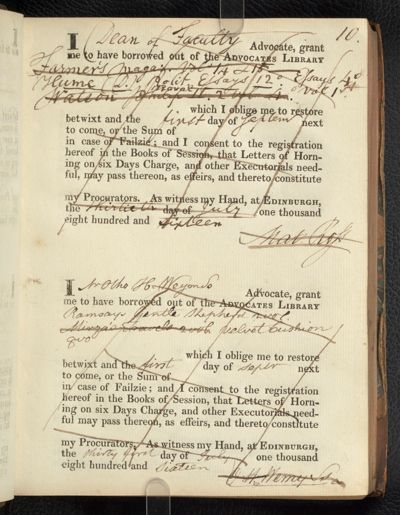 10.
I Dean of Faculty Advocate, grant
me to have borrowed out of the ADVOCATES LIBRARY
Farmers Magaz. Vol 14 & 15
Hume Polit Essays 12o Essays 4o
Watson vol 1st
which I oblige me to restore
betwixt and the first day of Septem next
to come, or the Sum of
in case of Failzie; and I consent to the registration
hereof in the Books of Session, that Letters of Horn-
ing on six Days Charge, and other Executorials need-
ful, may pass thereon, as effeirs, and thereto constitute
my Procurators. As witness my Hand, at EDINBURGH,
the thirtieth day of July one thousand
eight hundred and sixteen
I Advocate, grant
me to have borrowed out of the ADVOCATES LIBRARY
Ramsays Gentle Shepherd 2 vol.
velvet Cushion
8vo
which I oblige me to restore
betwixt and the first day of Sepr next
to come, or the Sum of
in case of Failzie; and I consent to the registration
hereof in the Books of Session, that Letters of Horn-
ing on six Days Charge, and other Executorials need-
ful may pass thereon, as effeirs, and thereto constitute
my Procurators. As witness my Hand, at EDINBURGH,
the thirty first day of July one thousand
eight hundred and sixteen